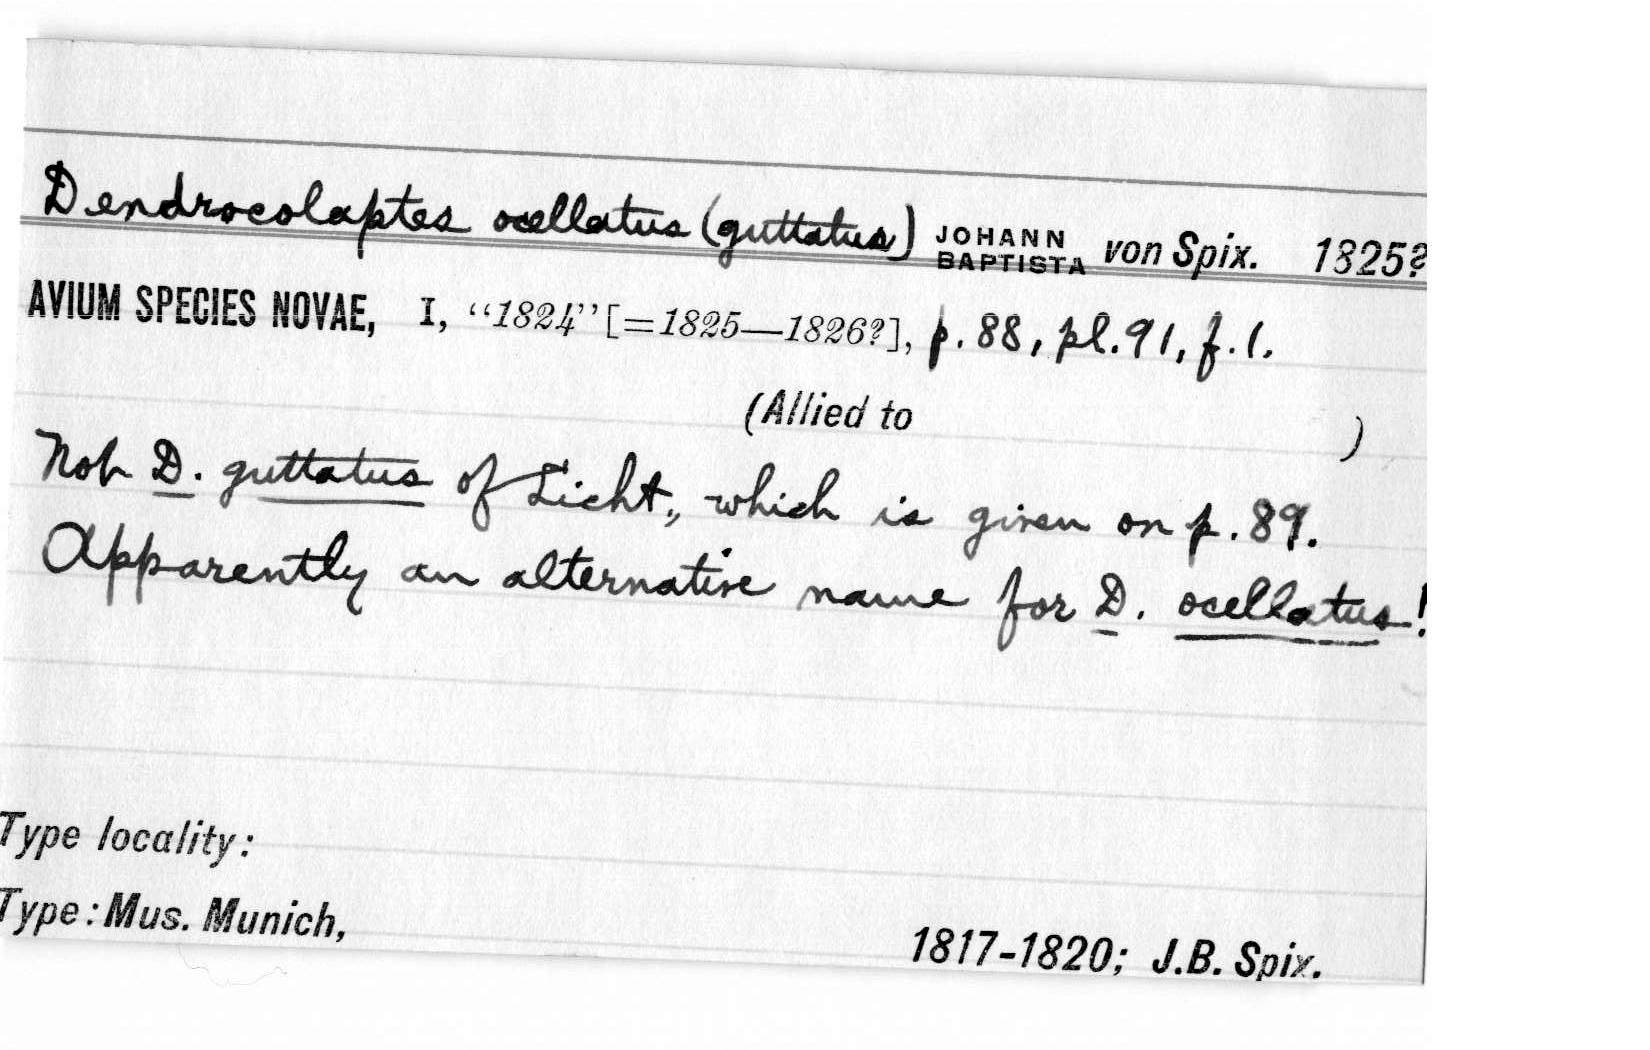 Dendrocolaptes ocellatus (guttatus) JOHANN BAPTISTA von Spix. 1825?
AVIUM SPECIES NOVAE, I, “1824” [=1825—1826?], p. 88, pl. 91, f. 1.
(Allied to )
Not D. guttatus of Licht., which is given on p. 89.
Apparently an alternative name for D. ocellatus!
Type locality:
Type: Mus. Munich,
1817-1820; J.B. Spix.